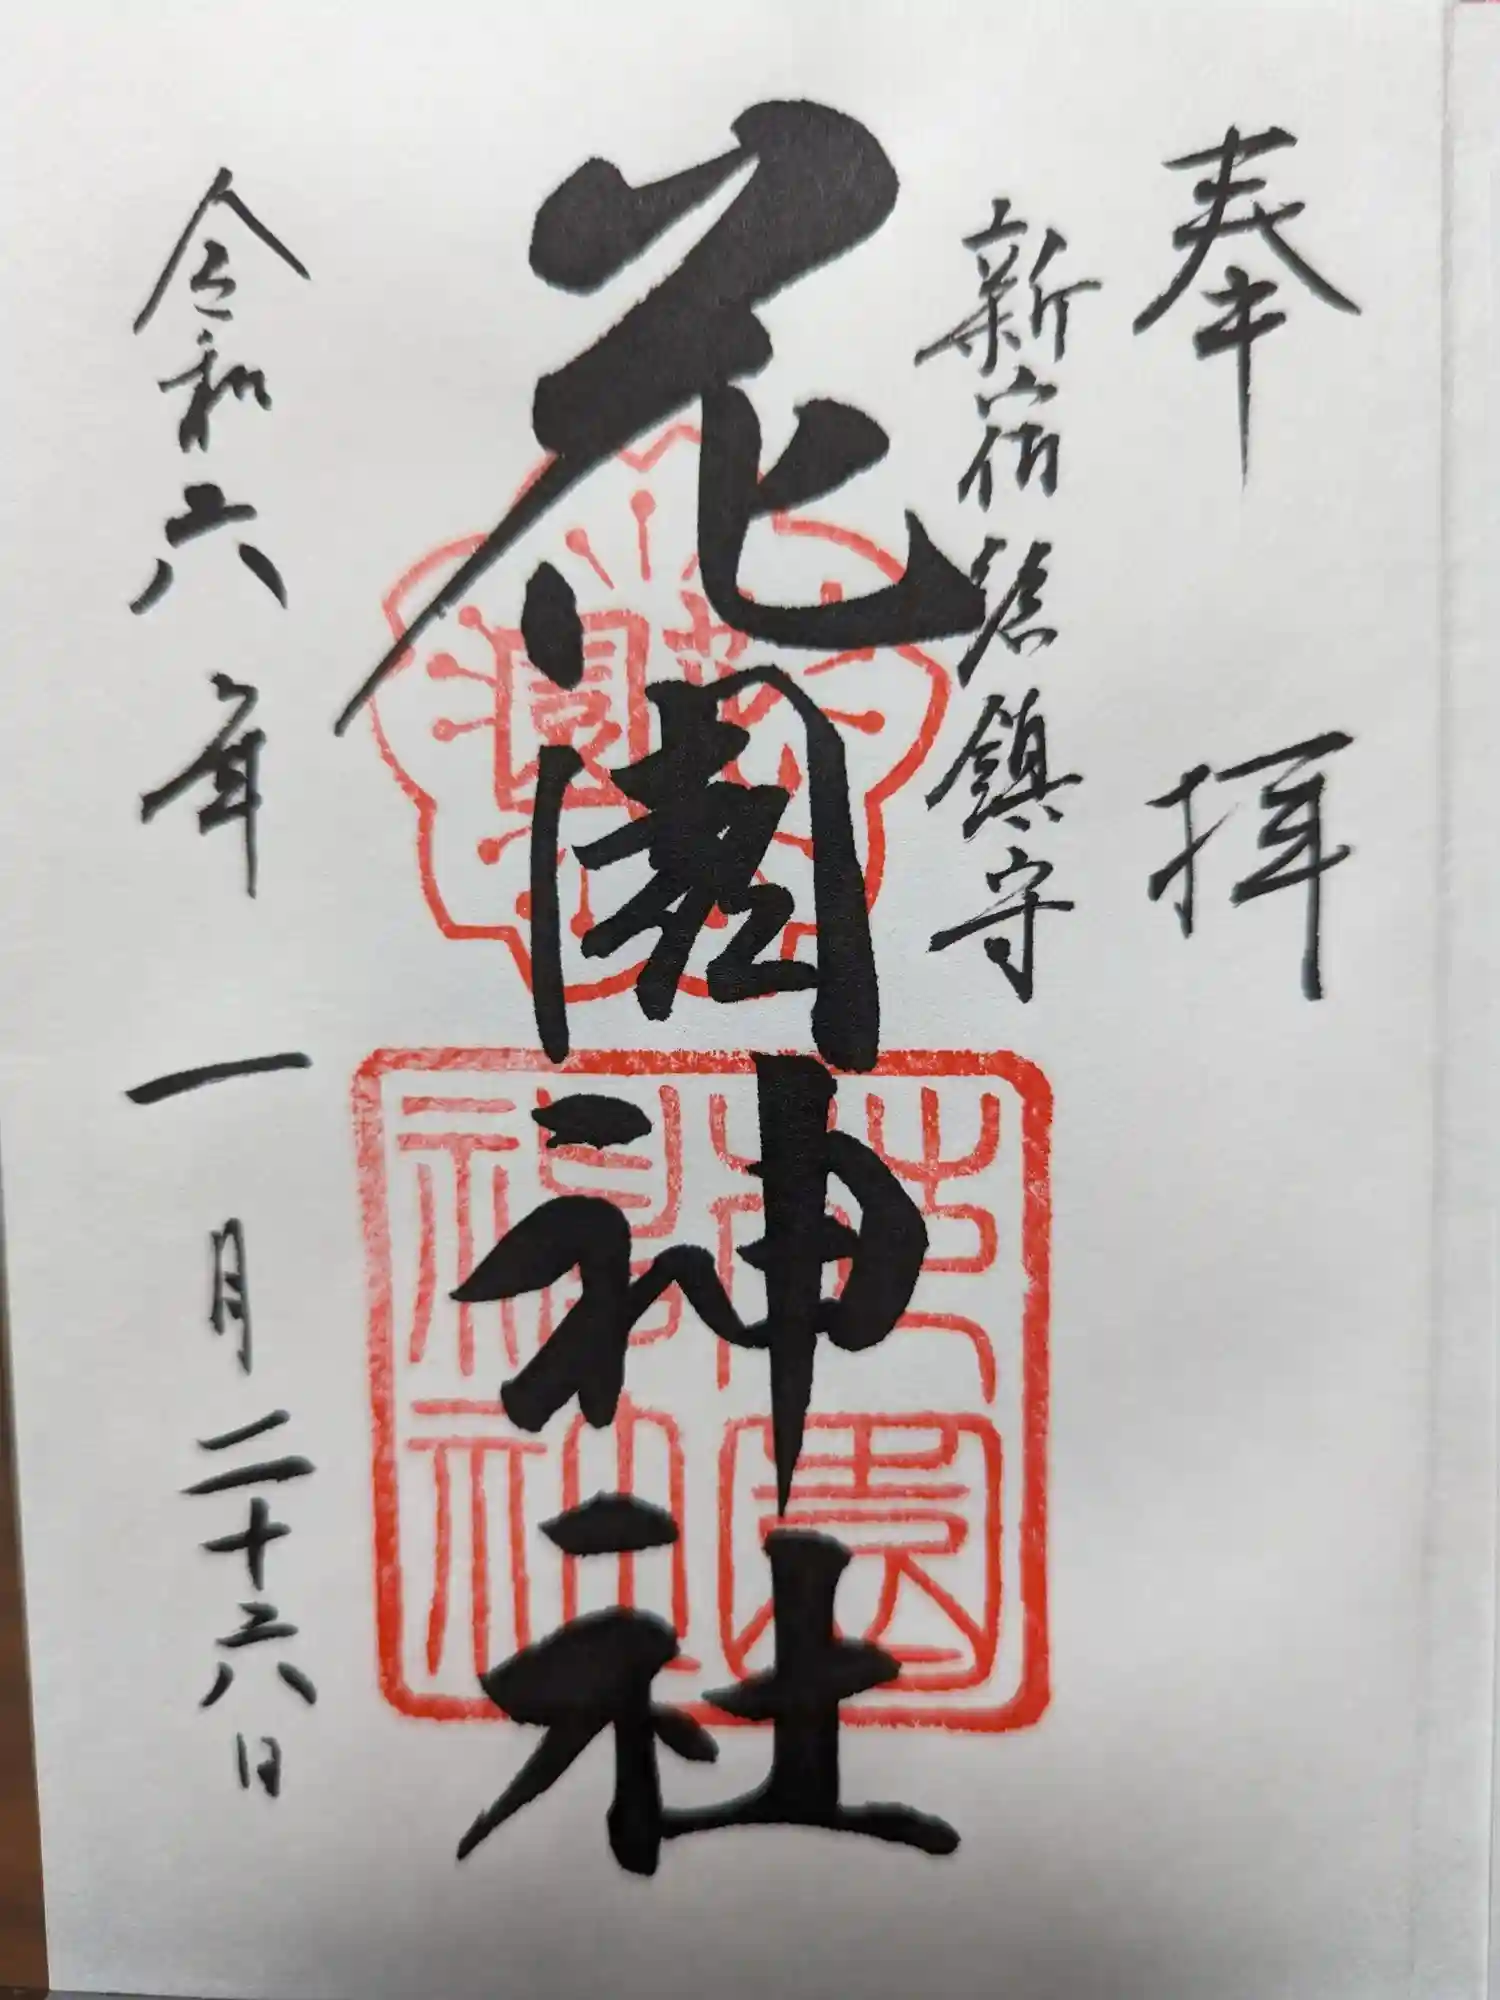 奉拝
新宿總鎮守
花園神社
令和六年一月二十六日
花園
花園神社